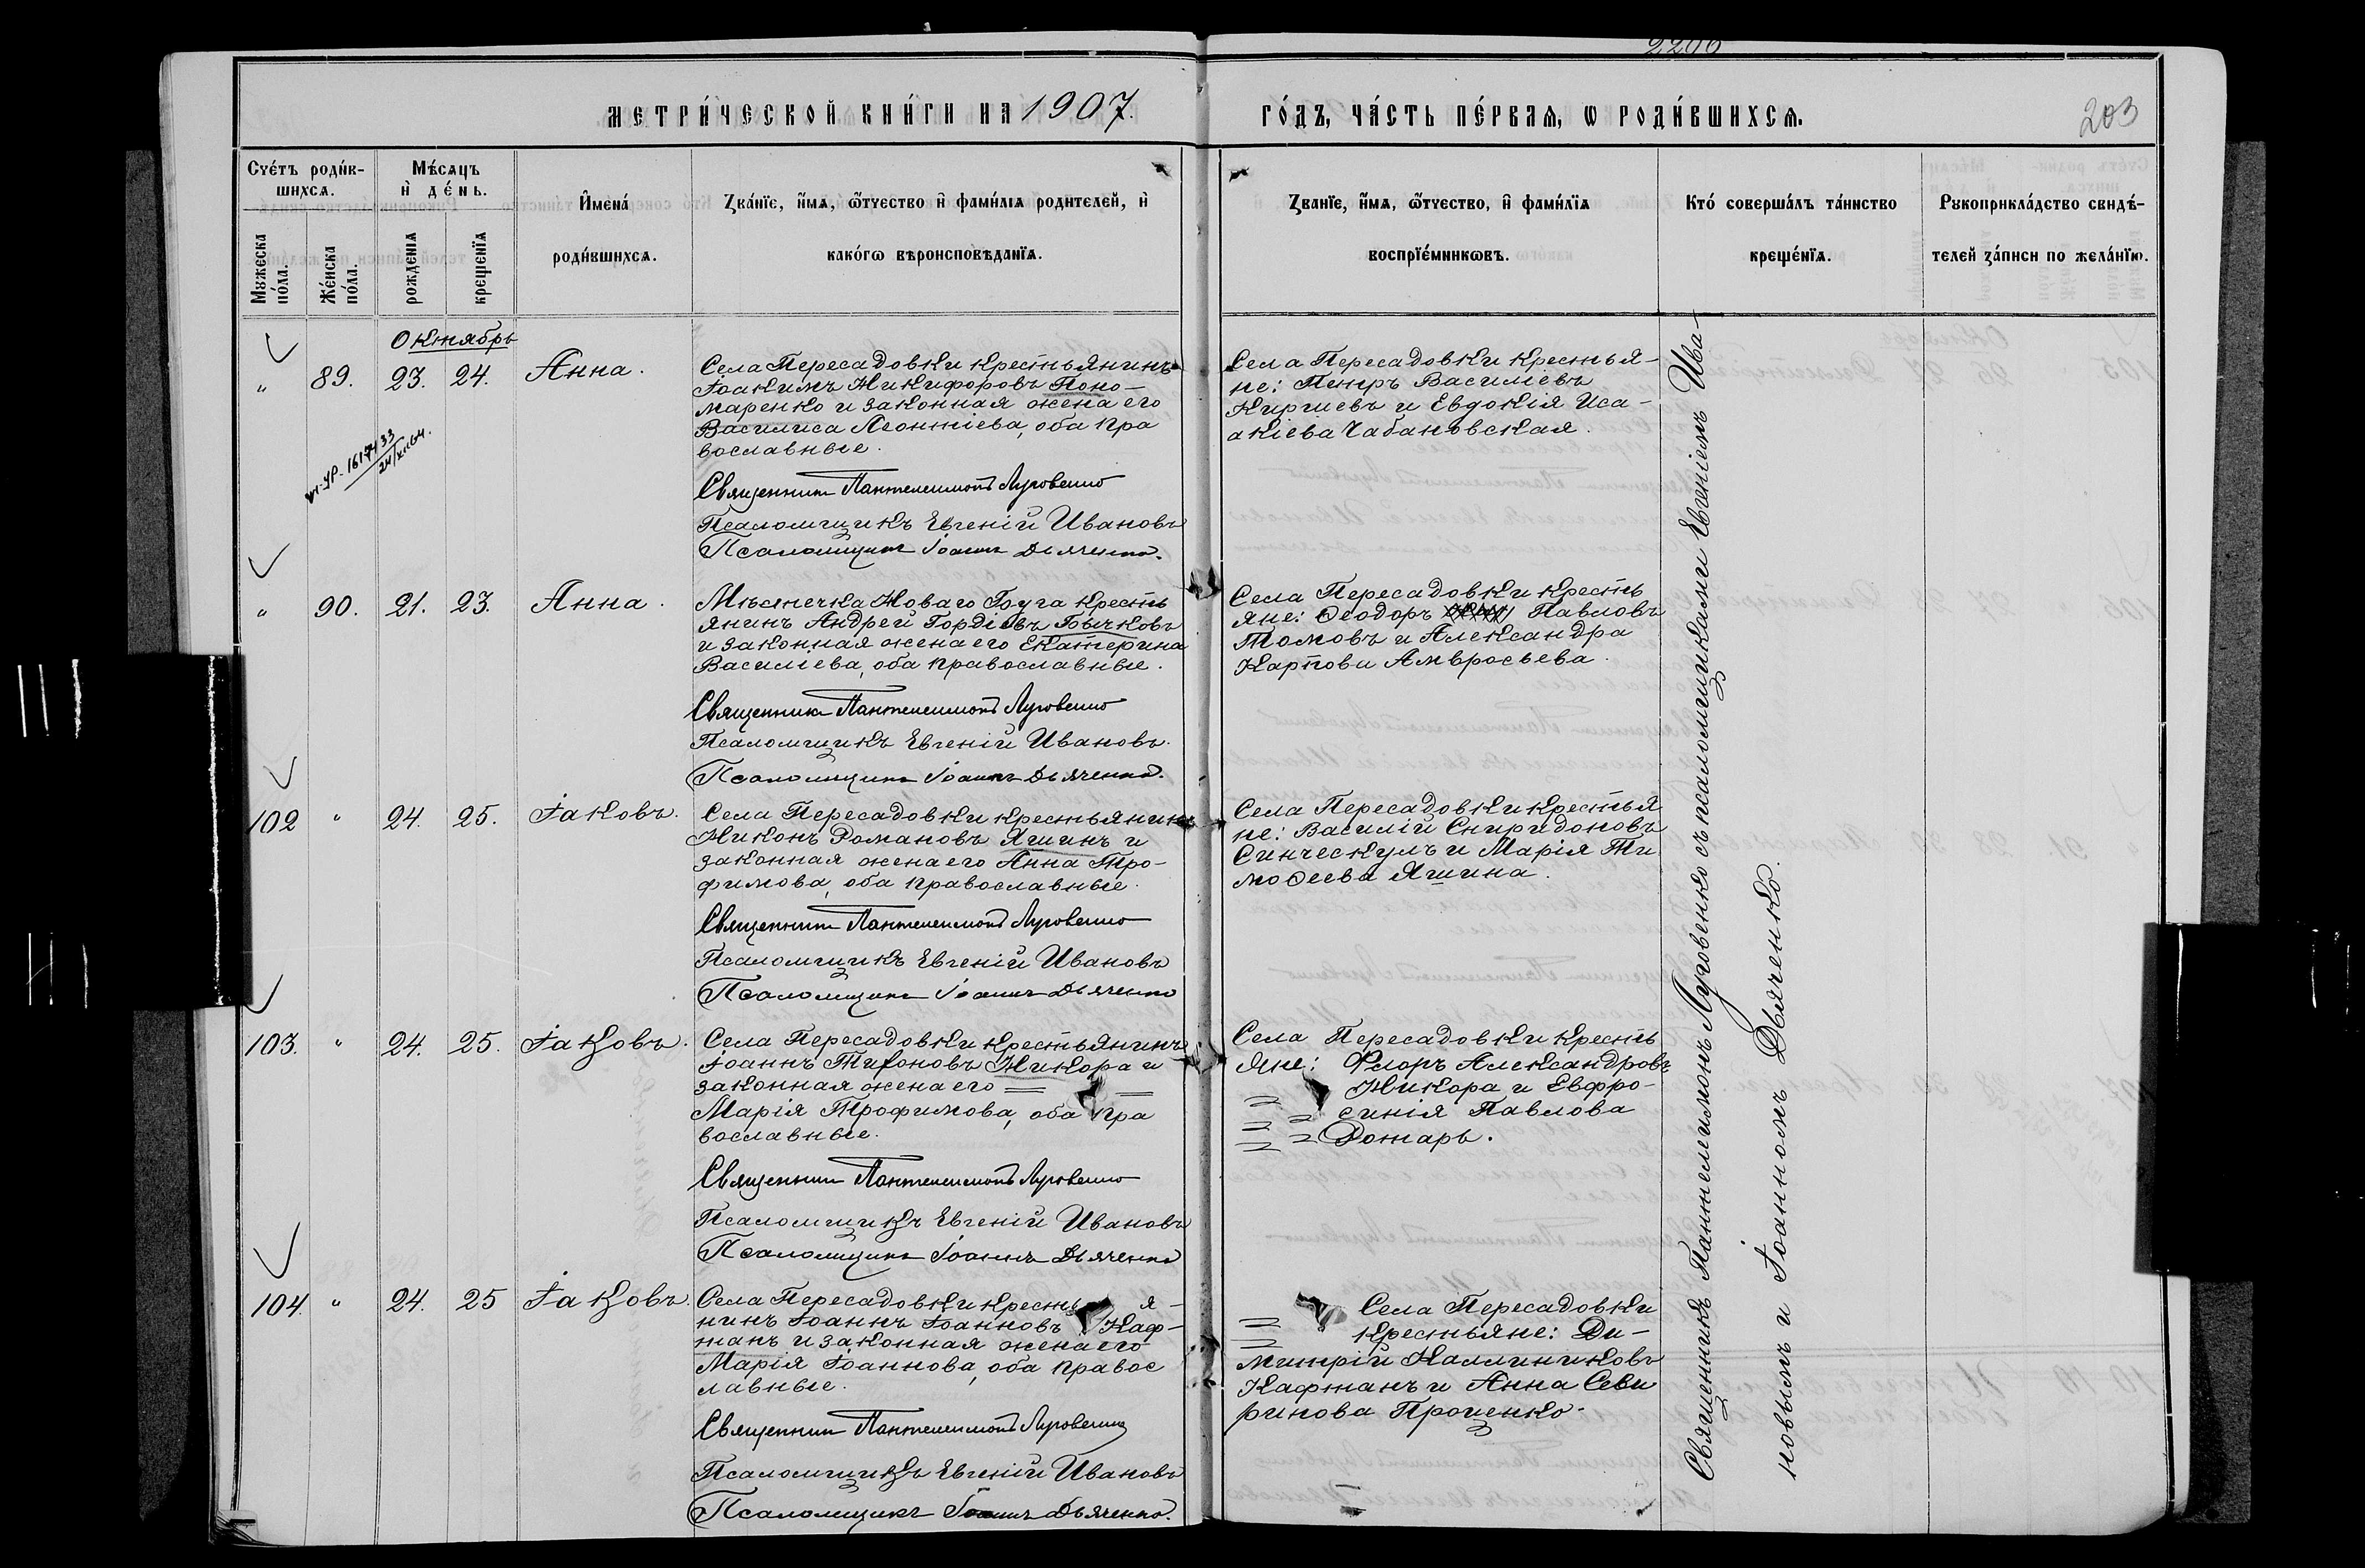 2206
МЕТРИ́ЧЕСКОЙ КНИ́ГИ НА 1907.
ГО́ДЪ, ЧА́СТЬ ПЕ́РВАѦ, Ѡ РОДИ́ВШИХСѦ.
203
Сче́тъ роди́в-
шихсѧ.
Мꙋжеска
по́ла.
Же́нска
по́ла.
Мѣ́сѧцъ
и҆ де́нь.
рожденїѧ
крещенїѧ
И҆мена́
роди́вшихсѧ.
Зва́нїе, и҆́мѧ, ѻ҆́тчество и҆ фами́лїѧ родителей, и҆
како́гѡ вѣроисповѣданїѧ.
Званїе, и҆́мѧ, ѻ҆́тчество, и҆ фами́лїѧ
воспрїе́мникѡвъ.
Кто́ соверша́лъ та́инство
креще́нїѧ.
Рꙋкоприкла́дство свидѣ́-
телей за́писи по жела́нїю.
Октябрь
" 89. 23. 24. Анна.
Села Пересадовки крестьянинъ
Іоакимъ Никифоровъ Поно-
маренко и законная жена его
Василиса Леонтіева, оба пра
вославные.
Священник Пантелеимонъ Луговенко
Псаломщикъ Евгеній Ивановъ
Псаломщикъ Іоаннъ Дьяченко.
Села Пересадовки крестья-
не: Петръ Василіевъ
Киргиевъ и Евдокія Иса-
акіева Чабановская.
" 90. 21. 23. Анна.
Мѣстечка Новаго Буга кресть
янинъ Андрей Гордіевъ Бычковъ
и законная жена его Екатерина
Василіева, оба православные.
Священникъ Пантелеимонъ Луговенко
Псаломщикъ Евгеній Ивановъ.
Псаломщикъ Іоаннъ Дьяченко.
Села Пересадовки кресть
яне: Ѳеодоръ Павловъ
Томовъ и Александра
Карпова Амвросьева.
102 " 24. 25. Іаковъ.
Села Пересадовки крестьянинъ
Никонъ Романовъ Яшинъ и
законная жена его Анна Тро-
фимова, оба православные.
Священник Пантелеимонъ Луговенко
Псаломщикъ Евгеній Ивановъ
Псаломщикъ Іоаннъ Дьяченко
Села Пересадовки крестья
не: Василій Спиридоновъ
Синческулъ и Марія Ти
моѳеева Яшина.
103. " 24. 25. Іаковъ.
Села Пересадовки крестьянинъ
Іоаннъ Тихоновъ Никора и
законная жена его
Марія Трофимова, оба пра
вославные.
Священник Пантелеимонъ Луговенко
Псаломщикъ Евгеній Ивановъ
Псаломщикъ Іоаннъ Дьяченко
Села Пересадовки кресть
яне: Флоръ Александровъ
Никора и Евфро-
синія Павлова
Ротарь.
104. " 24. 25 Іаковъ.
Села Пересадовки кресть я-
нинъ Іоаннъ Іоанновъ Каф-
танъ и законная жена его
Марія Іоаннова, оба правос
лавные.
Священник Пантелеимонъ Луговенко
Псаломщикъ Евгеній Ивановъ
Псаломщикъ Іоаннъ Дьяченко.
Села Пересадовки
крестьяне: Ди-
митрій Каллиниковъ
Кафтанъ и Анна Севи
ринова Проценко.
Священникъ Пантелеимонъ Луговенко съ псаломщиками Евгеніемъ Ива-
новымъ и Іоанномъ Дьяченко.